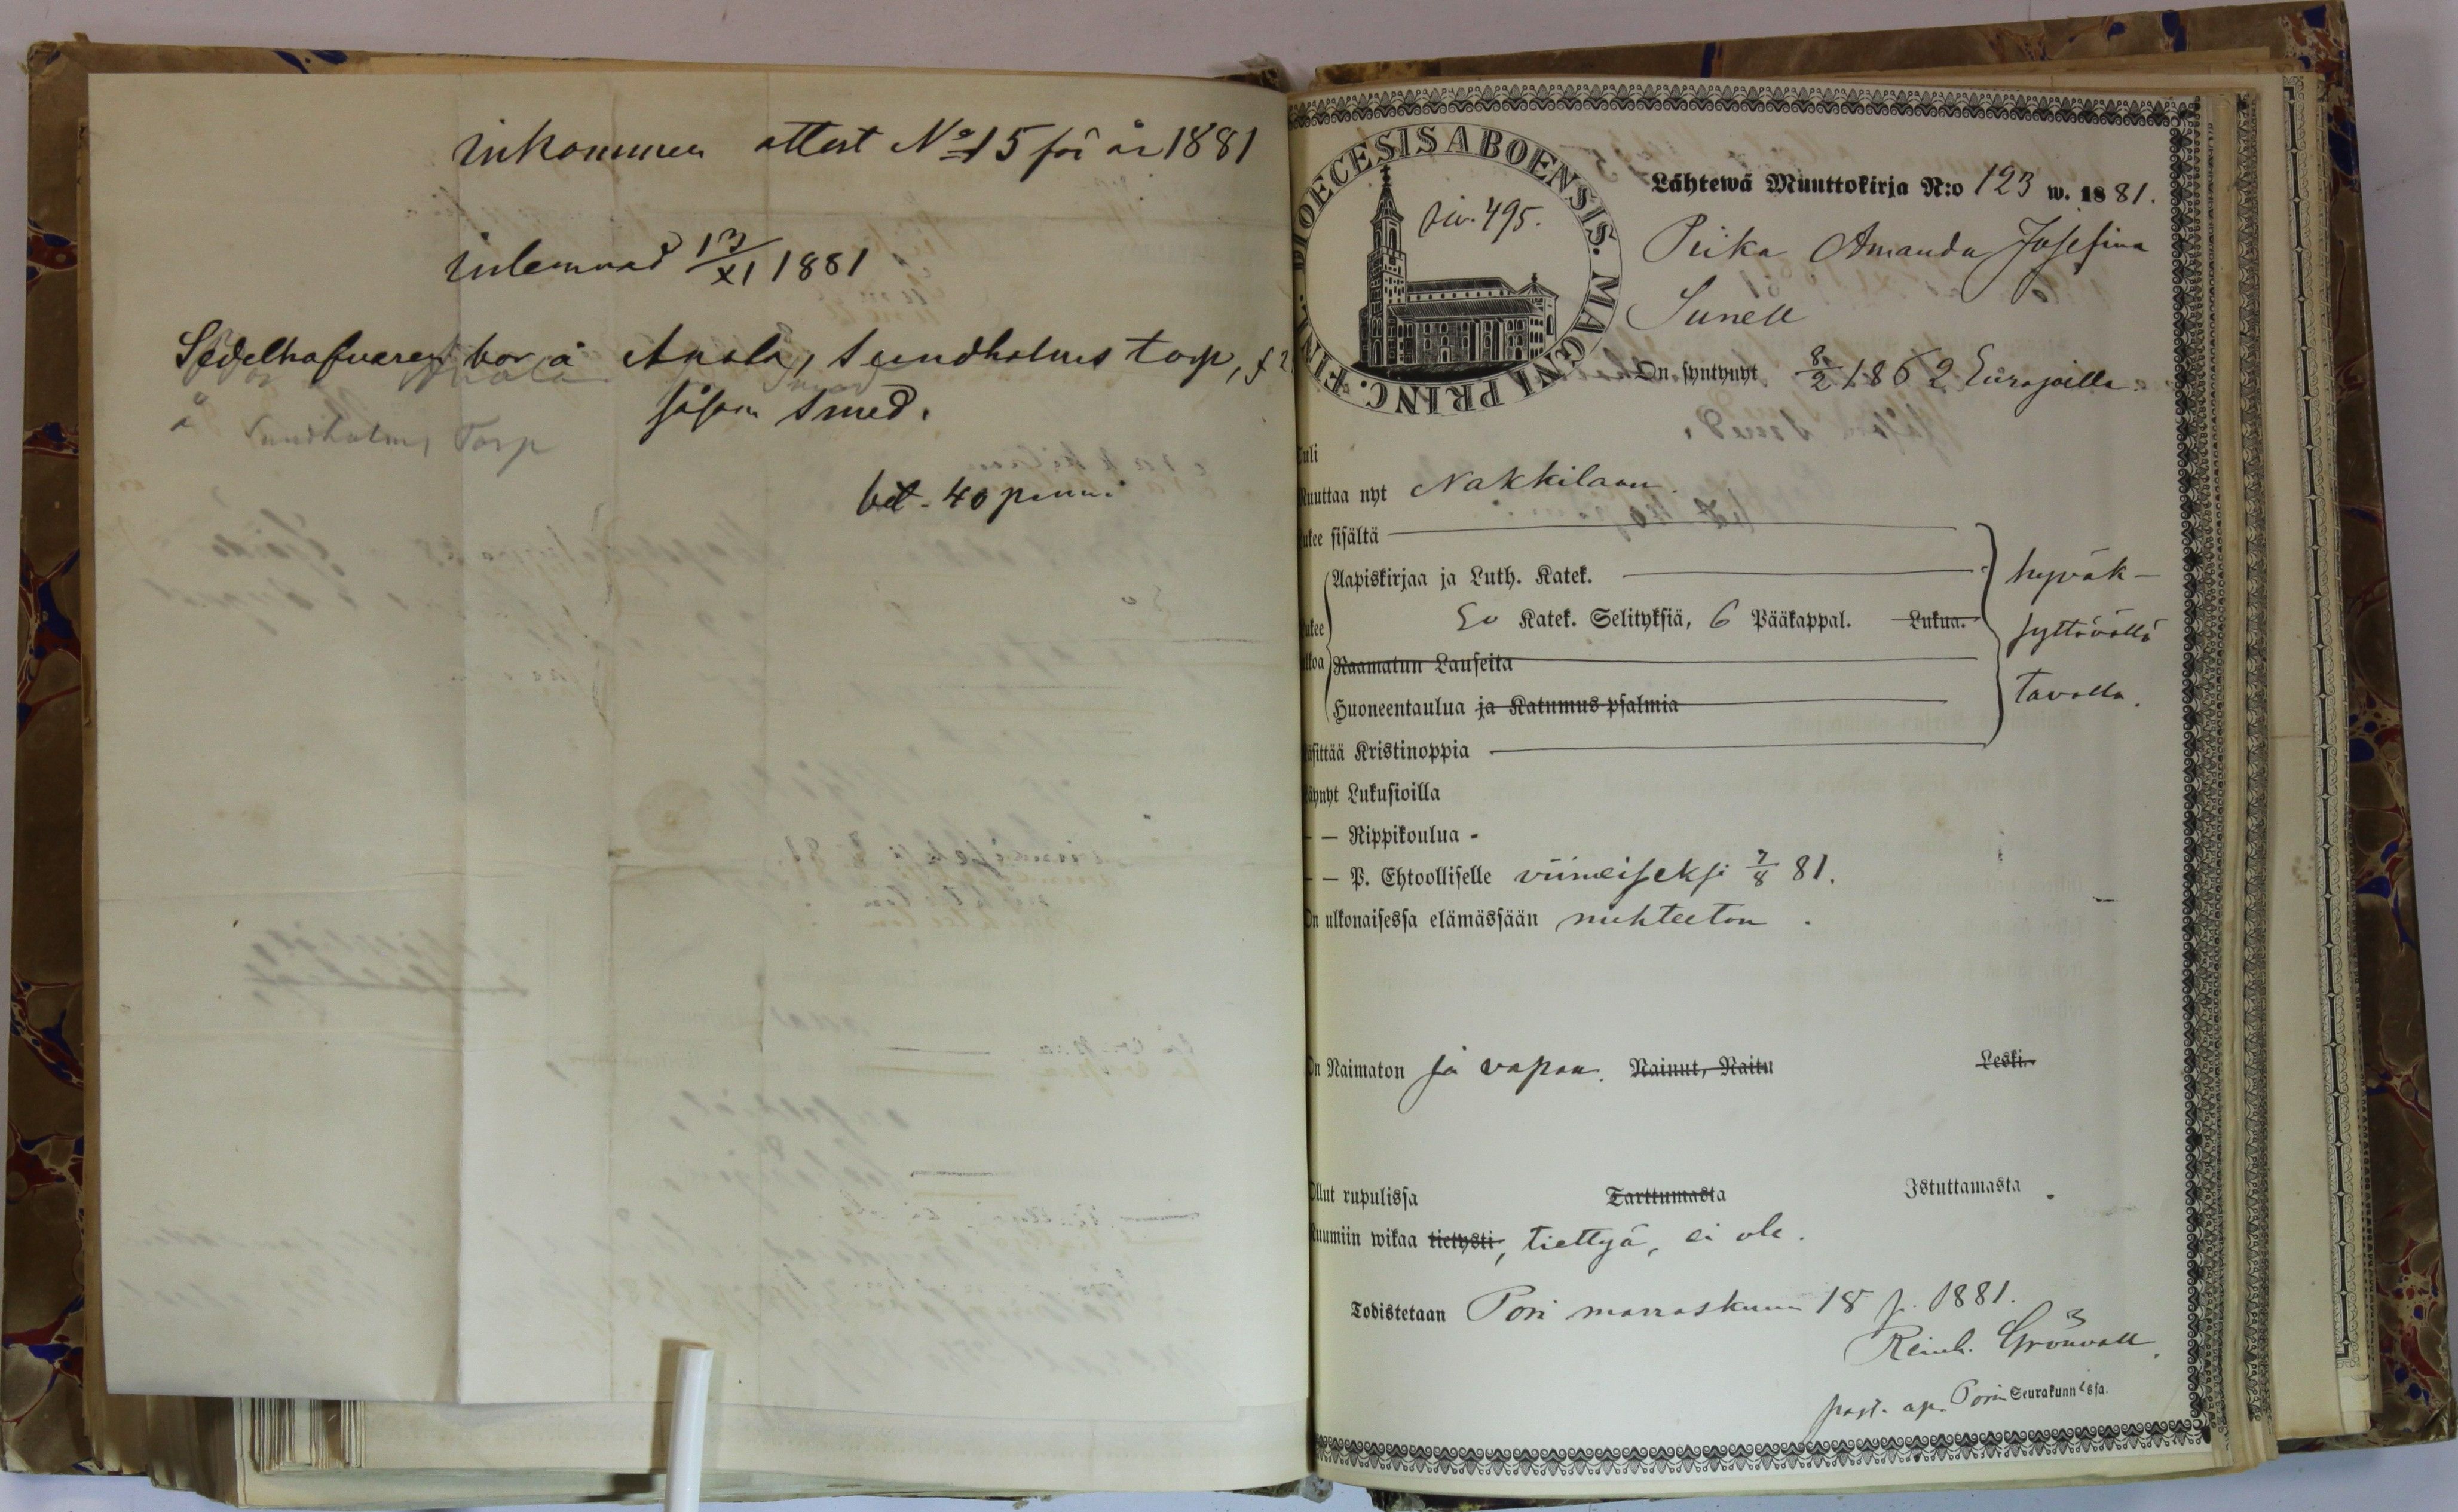 inkommen attest No 15 för år 1881
inlemnad 13/XI 1881
Sedelhafvaren bor å Anola, Sundholms torp,
såsom Smed.
å Sundholms Torp
bet. 40 penni
DIOECESIS ABOENSIS. MAGNI PRINC. FINL.
siv. 495.
Lähtewä Muuttokirja N:o 123 w. 1881.
Piika Amanda Josefina
Sunell
On syntynyt 8/2 1862 Eurajoella.
Tuli
Muuttaa nyt Nakkilaan.
Lukee sisältä
Aapiskirjaa ja Luth. Katek.
Sv Katek. Selityksiä, 6 Pääkappal. Lukua.
Lukee ulkoa
Raamatun Lauseita
Huoneentaulua ja Katumus-psalmia
hyväk-
syttävällä
tavalla.
Käsittää Kristinoppia
Käynyt Lukusioilla
— — Rippikoulua
— — P. Ehtoolliselle viimeiseksi 7/8 81.
On ulkonaisessa elämässään nuhteeton.
On Naimaton ja vapaa. Nainut, Naitu Leski.
Ollut rupulissa Tarttumasta Istuttamasta.
Ruumiin wikaa tietysti, tiettyä, ei ole.
Todistetaan Pori marraskuun 18 p. 1881.
Reinh. Grönvall,
past. ap. Porin Seurakunnassa.